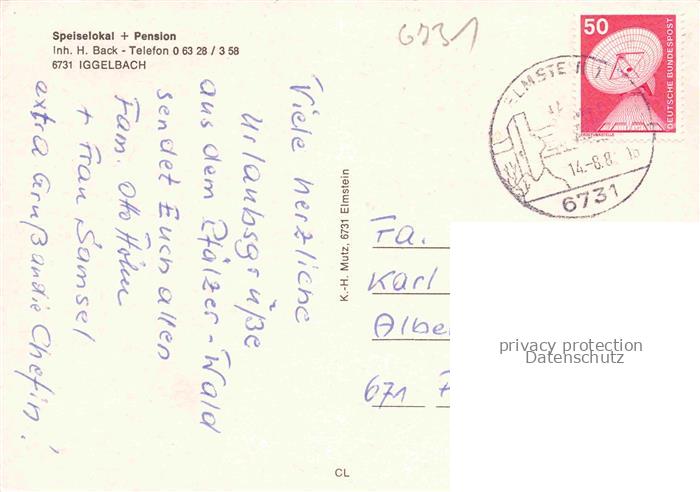 Speiselokal + Pension
Inh. H. Back - Telefon 0 63 28 / 3 58
6731 IGGELBACH
6731
50
DEUTSCHE BUNDESPOST
ELMSTEIN
14.-8.8
6731
Viele herzliche
Urlaubsgrüße
aus dem Pfälzer-Wald
sendet Euch allen
Fam. Otto Holm
+ Frau Samsel
extra Gruß an die Chefin!
K.-H. Mutz, 6731 Elmstein
Fa.
Karl
Albe
671
CL
privacy protection
Datenschutz